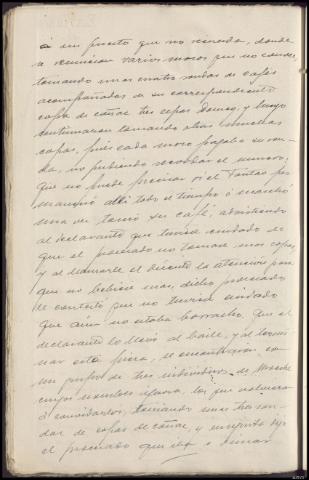 a un puerto que no recuerda, donde
se reunieron varios mozos que no conoce,
tomando unas cuatro rondas de cafés
acompañados de su correspondiente
copa de coñac tres copas Domecq, y luego
continuaron tomando otras muchas
copas, pues cada mozo pagaba su ron-
da, no pudiendo recordar el número,
que no puede precisar si el
allí todo el tiempo ó marchó
una vez tomó su café, advirtiendo
al declarante que tuviera cuidado de
que el procesado no tomara mas copas,
y al llamarle el dicente la atención para
que no bebiese mas, dicho procesado
le contestó que no tuviera cuidado
que aún no estaba borracho. Que el
declarante lo llevó al baile, y al termi-
nar esta pieza, se encontraron con
un grupo de tres individuos de
cuyos nombres ignora, los que volvieron
á convidarlos, tomando unas tres ron-
das de copas de coñac, y enseguida dijo
el procesado que iba a